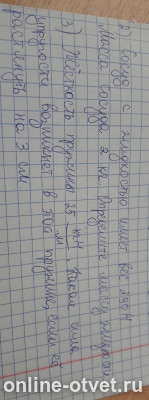 2) Сосуд с жидкостью имеет вес 190 Н
Масса сосуда 2 кг. Определите массу жидкости
3) Жёсткость пружины 25 кН/м. Какая сила
упругости возникнет в этой пружине, если её
растянуть на 3 см
online-otvet.ru